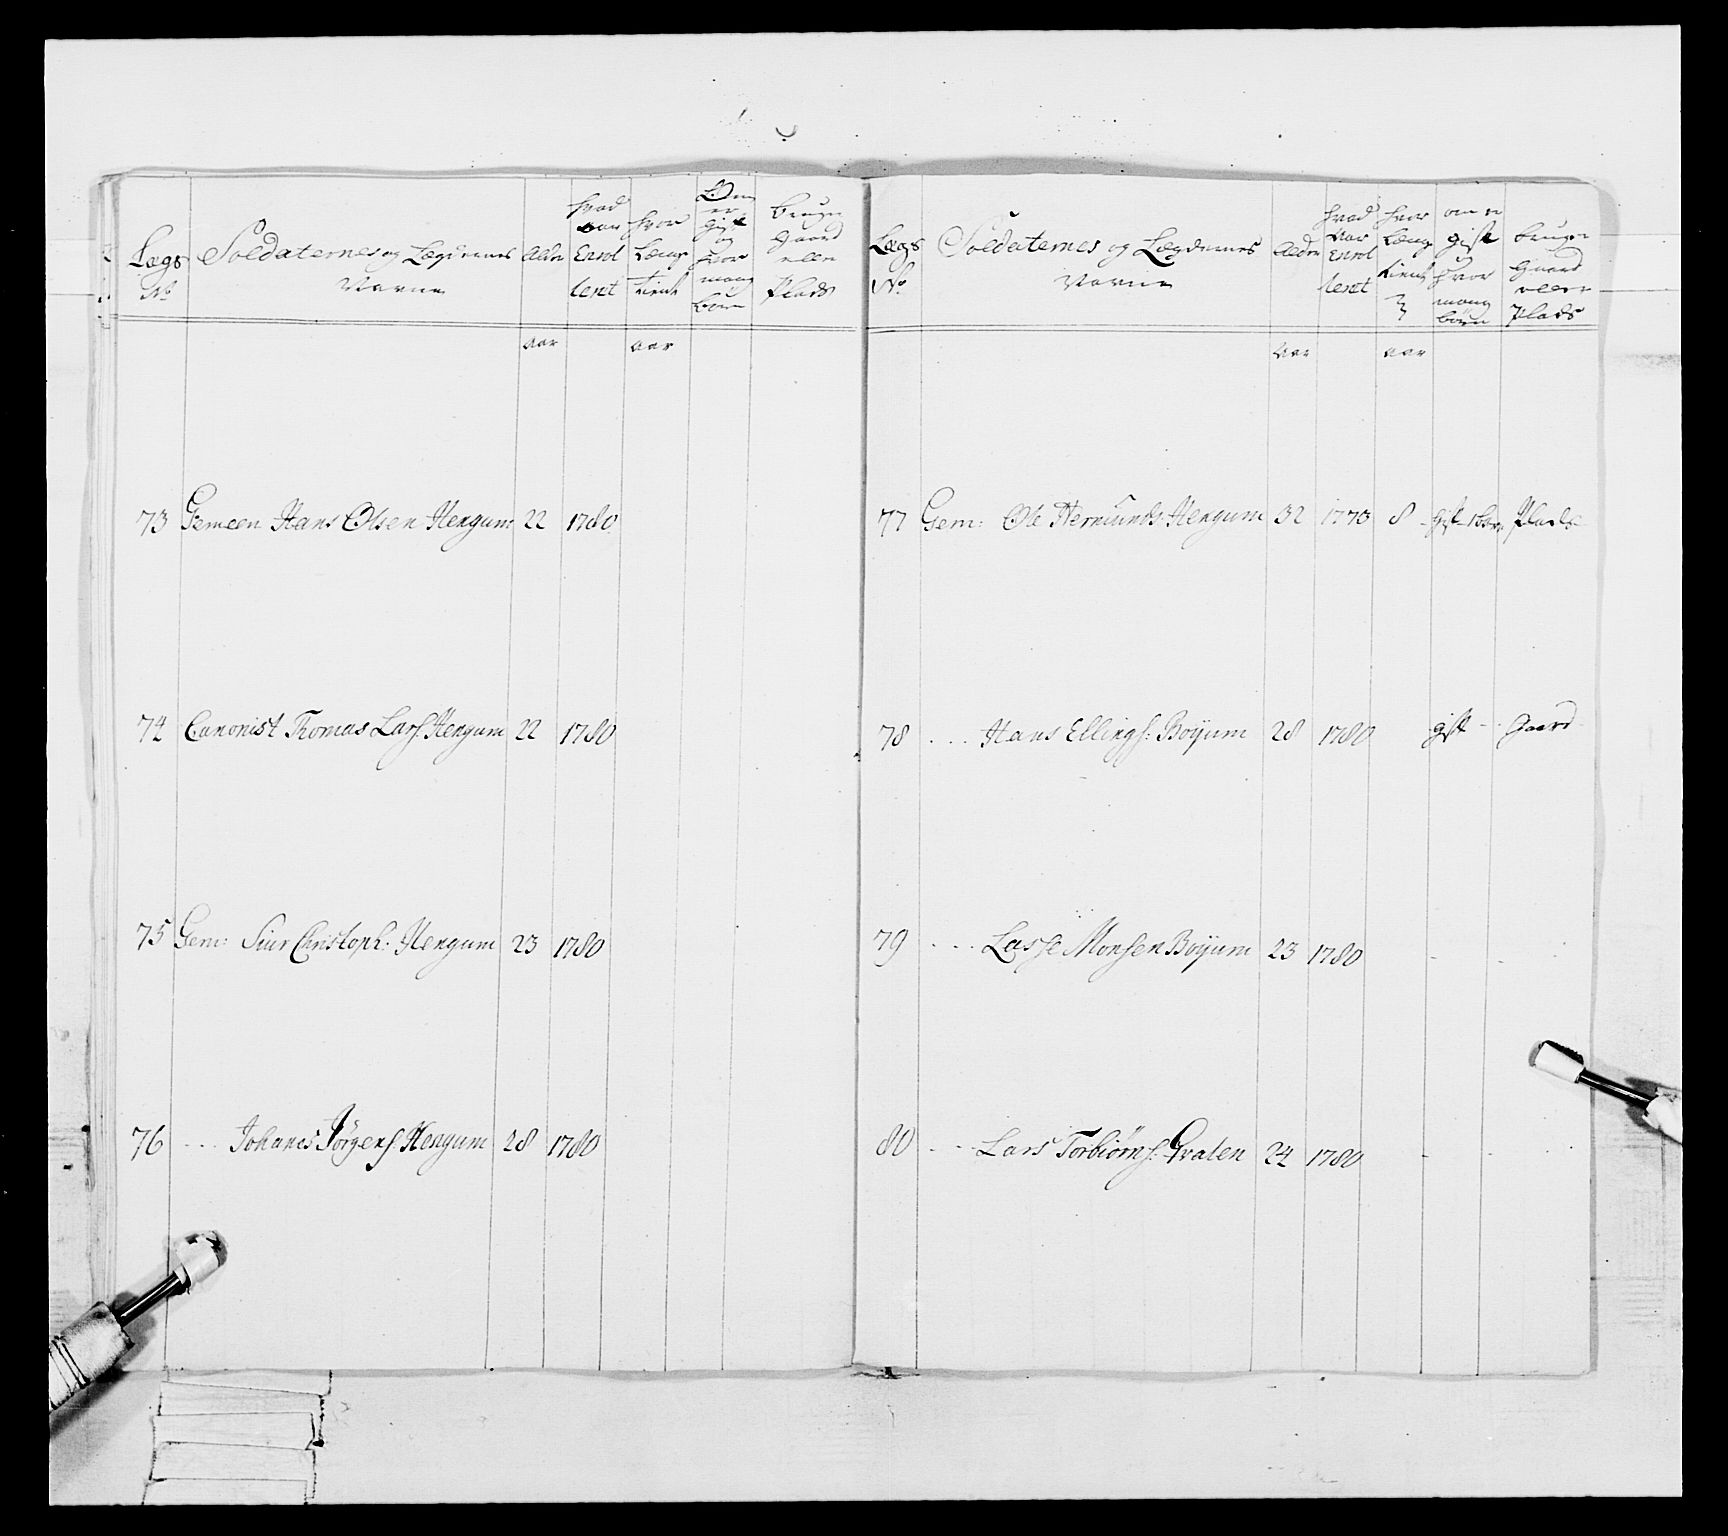 Lægs No
Soldaternes og Lægdernes Navne
Alder
hvad aar Enrolleret
hvor Længe tient
Om er gift og hvor mang børn
bruger Gaard eller Plads
aar aar
73 Gemeen Hans Olsen Hengum 22 1780
74 Canonist Thomas Lars: Hengum 22 1780
75 Gem: Siur Christoph: Hengum 23 1780
76 ... Johanes Jørgens: Hengum 28 1780
Lægs No
Soldaternes og Lægdernes Navne
Alder
hvad aar Enrolleret
hvor Længe tient
om er gift hvor mang børn
bruger Gaard eller Plads
aar aar
77 Gem: Ole Hermunds: Hengum 32 1773 8 gift 1 barn Plads
78 .... Hans Ellings: Boÿum 28 1780 gift - Gaard
79 ... Lasse Monsen Boÿum 23 1780 - -
80 ... Lars Torbiørns: 24 1780 - -